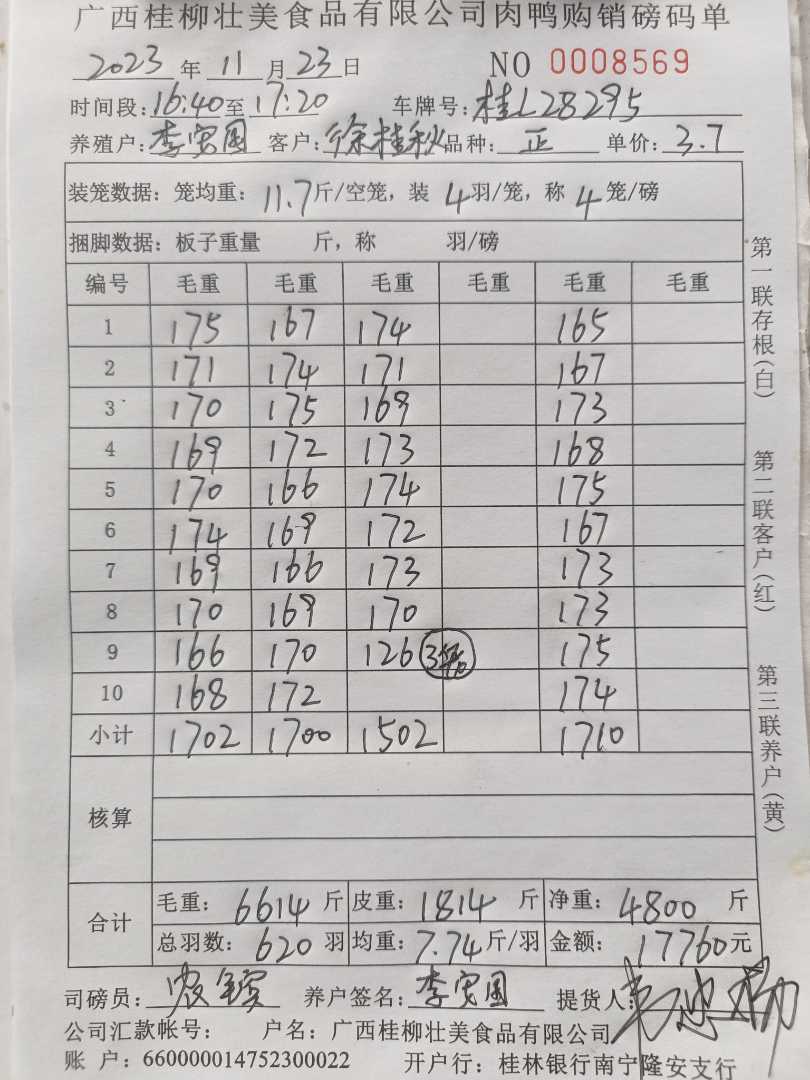 广西桂柳壮美食品有限公司肉鸭购销磅码单
2023 年 11 月 23 日 NO 0008569
时间段: 16:40 至 17:20 车牌号: 桂L28295
养殖户: 李宝国 客户: 徐桂秋 品种: 正 单价: 3.7
装笼数据: 笼均重: 11.7 斤/空笼, 装 4 羽/笼, 称 4 笼/磅
捆脚数据: 板子重量 斤, 称 羽/磅
编号 毛重 毛重 毛重 毛重 毛重 毛重
1 175 167 174 165
2 171 174 171 167
3 170 175 169 173
4 169 172 173 168
5 170 166 174 175
6 174 169 172 167
7 169 166 173 173
8 170 169 170 173
9 166 170 126 3 175
10 168 172 174
小计 1702 1700 1502 1710
核算
合计
毛重: 6614 斤 皮重: 1814 斤 净重: 4800 斤
总羽数: 620 羽 均重: 7.74 斤/羽 金额: 17760 元
司磅员: 养户签名: 李宝国 提货人:
公司汇款帐号: 户名: 广西桂柳壮美食品有限公司
账 户: 660000014752300022 开户行: 桂林银行南宁隆安支行
第一联存根(白)
第二联客户(红)
第三联养户(黄)